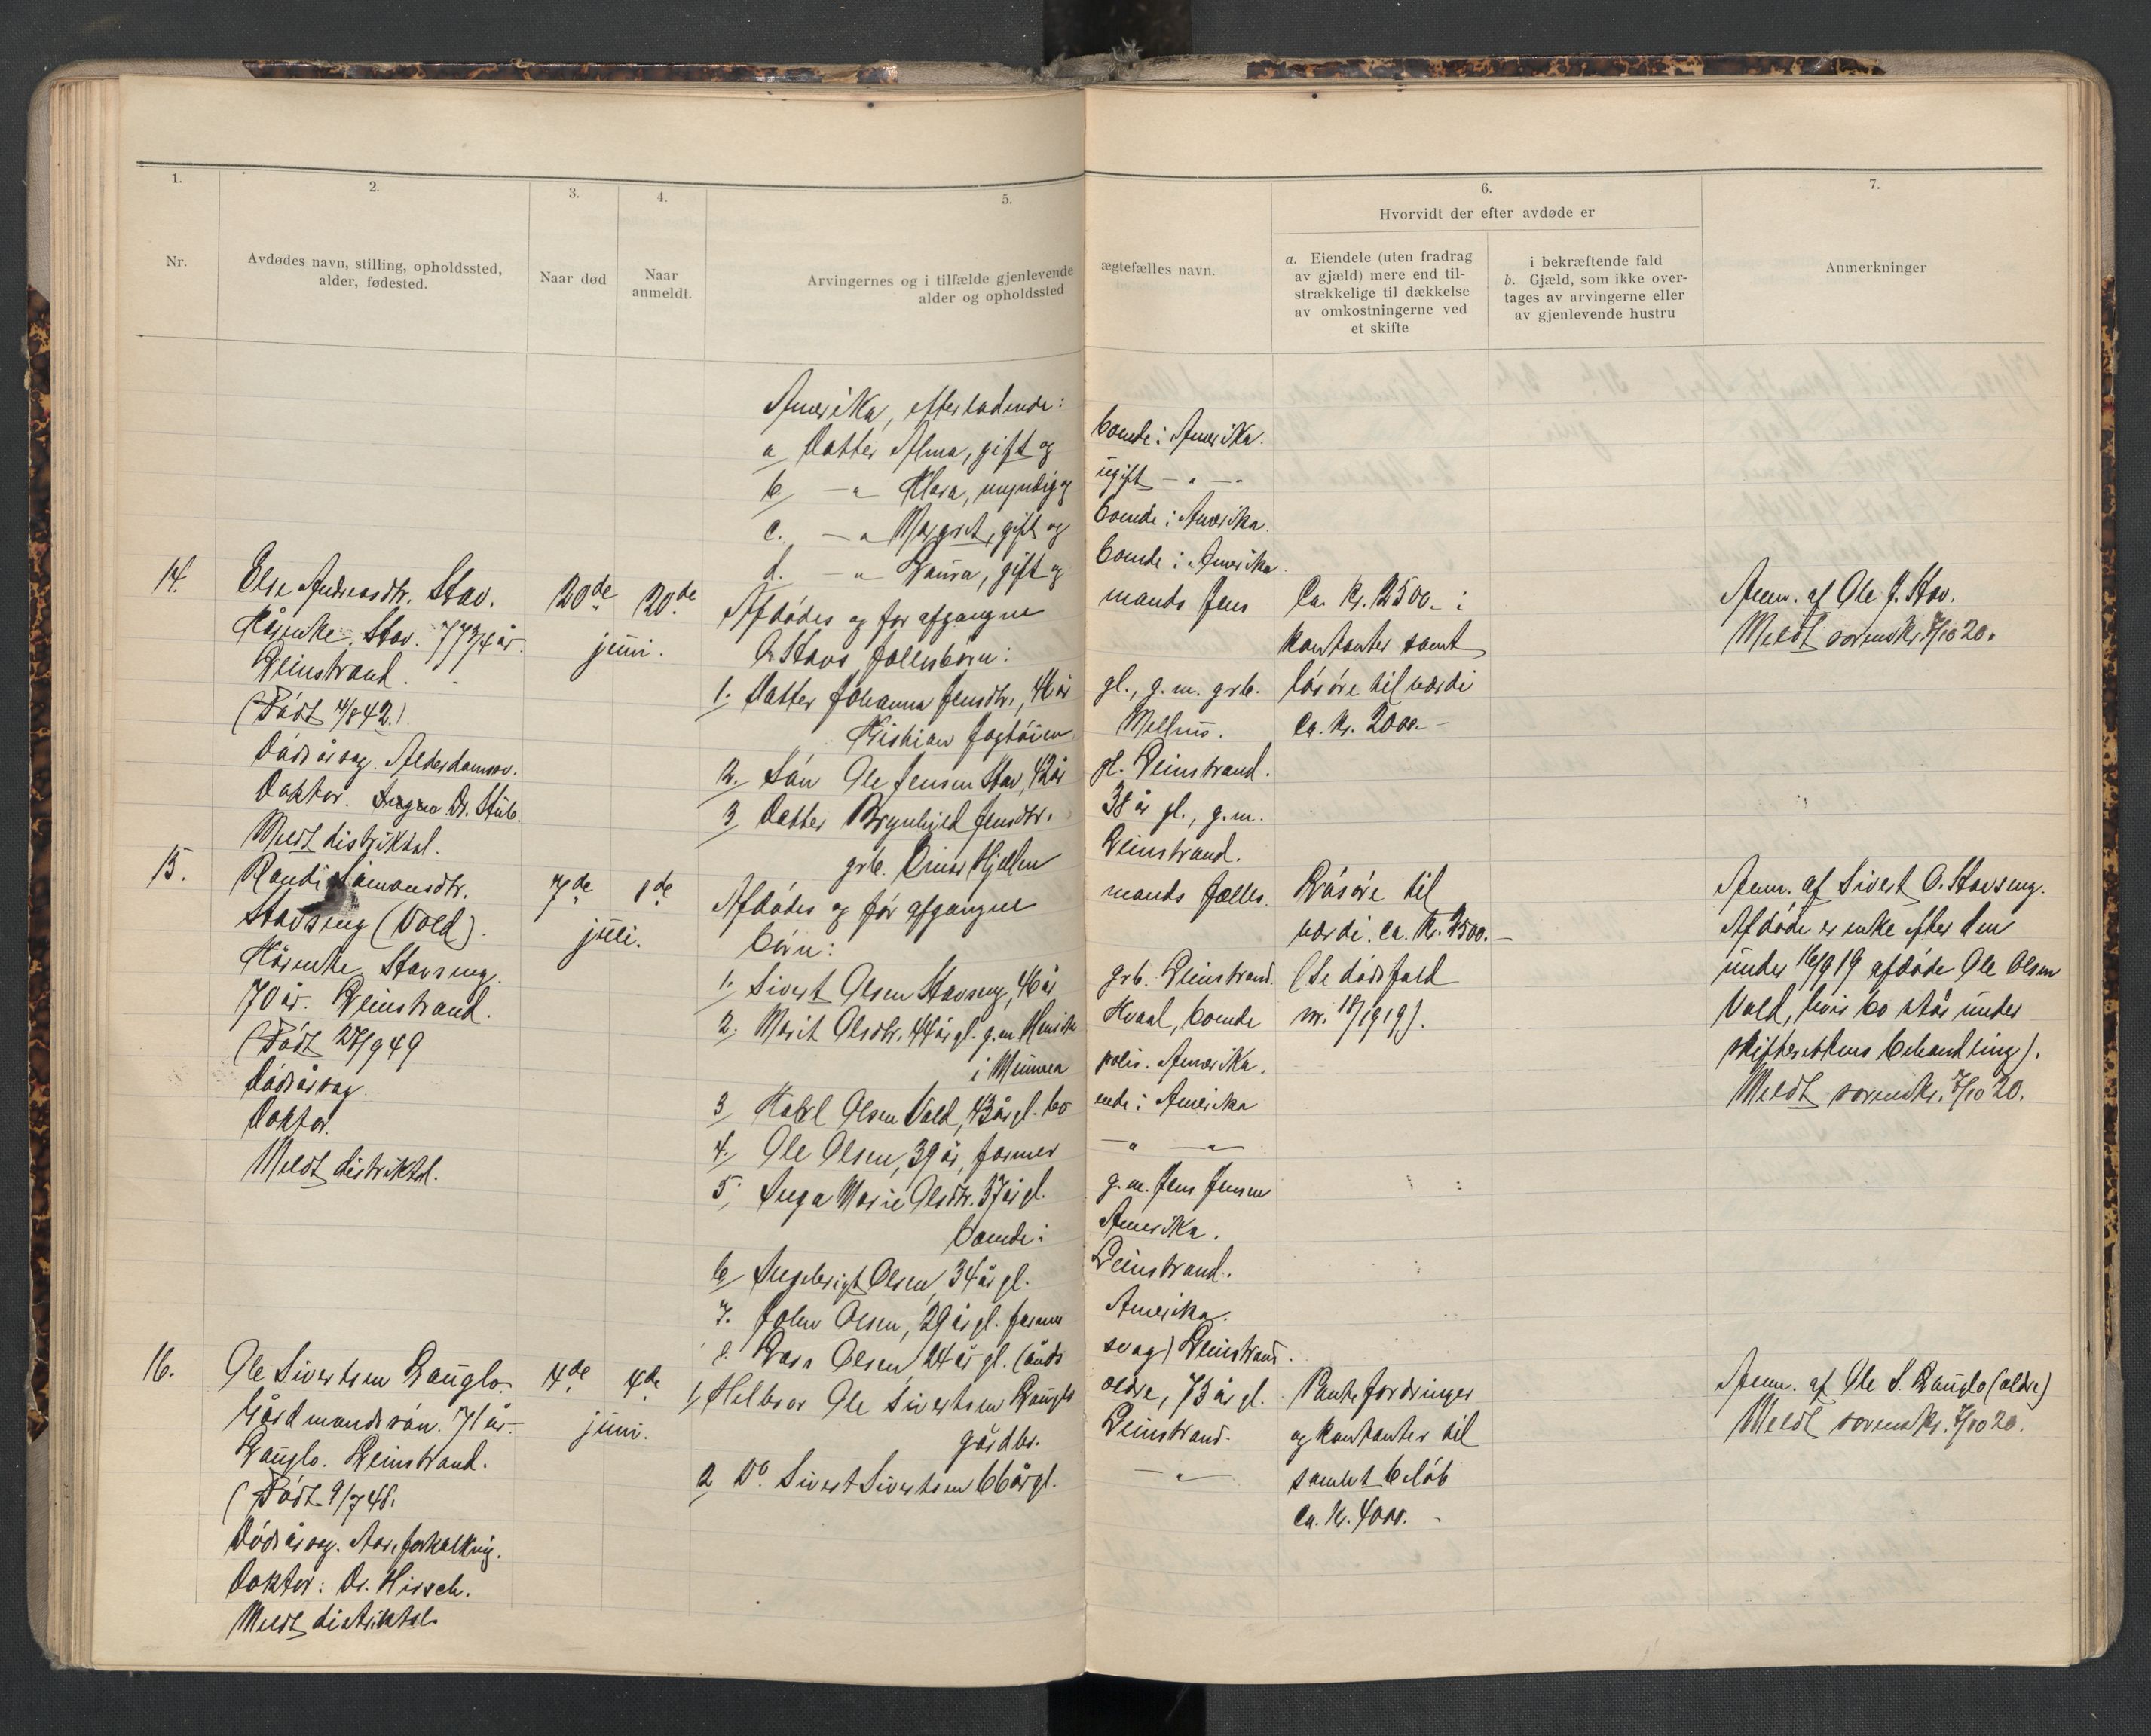 1.
2.
3.
4.
5.
6.
7.
Nr.
Avdødes navn, stilling, opholdssted,
alder, fødested.
Naar død
Naar
anmeldt.
Arvingernes og i tilfælde gjenlevende
alder og opholdssted
ægtefælles navn.
Hvorvidt der efter avdøde er
a. Eiendele (uten fradrag
av gjæld) mere end til-
strækkelige til dækkelse
av omkostningerne ved
et skifte
i bekræftende fald
b. Gjæld, som ikke over-
tages av arvingerne eller
av gjenlevende hustru
Anmerkninger
Amerika, efterladende:
a Datter Alma, gift og boende i Amerika.
b, —„— Klara, umyndig og ugift —„—
c. —„ Margret, gift og boende i Amerika.
d. —„ Laura, gift og boende i Amerika.
14.
Else Andreasdtr. Stav.
Kårenke. Stav. 77 3/4 år.
Leinstrand.
(Født 4/8 42.)
Dødsårsag. Alderdomssv.
Doktor. Dr. Stub.
Meldt distriktsl.
20de
20de
juni.
Afdødes og før afgangne mands Jens
O. Stavs fællesbørn:
1. Datter Johanna Jensdtr., 46 år gl., g.m. grb.
Kristian Jagtøien Melhus.
2. Søn Ole Jensen Stav, 42 år gl. Leinstrand.
3, Datter Brynhild Jensdtr. 38 år gl., g.m.
grb. Einar Hjellen Leinstrand.
Ca. kr. 2500.- i
kontanter samt
løsøre til værdi
ca. kr. 2000.-
Anm. af Ole J. Stav.
Meldt sorenskr. 7/10 20.
15.
Randi Simonsdtr.
Stavseng (Vold).
Kårenke Stavseng.
70 år. Leinstrand.
(Født 27/9 49
Dødsårsag.
Doktor.
Meldt distriktsl.
7de
8de
juli.
Afdødes og før afgangne mands fælles.
børn:
1. Sivert Olsen Stavseng, 46 år grb. Leinstrand.
2. Marit Olsdtr. 44 år gl. g.m. Henrik Hvaal, boende
i Minnea polis. Amerika.
3, Karl Olsen Vold, 43 år gl. bo ende i Amerika
4, Ole Olsen, 39 år, farmer —„— —„—
5, Inga Marie Olsdtr. 37 år gl. g.m. Jens Jensen
boende i Amerika.
6, Ingebrigt Olsen, 34 år gl. Leinstrand.
7. John Olsen, 29 år gl. farmer Amerika.
8. Lars Olsen, 24 år gl. (ånds svag) Leinstrand.
Løsøre til
værdi. ca. kr. 2500.-
(Se dødsfald
nr. 18/1919).
Anm. af Sivert O. Stavseng.
Afdøde er enke efter den
under 16/9 19 afdøde Ole Olsen
Vold, hvis bo står under
skifterettens behandling).
Meldt sorenskr. 7/10 20.
16.
Ole Sivertsen Lauglo.
Gårdmandssøn. 71 år.
Lauglo. Leinstrand.
(Født 9/7 48.
Dødsårsag. Åreforkalkning.
Doktor: Dr. Hirsch.
Meldt distriktsl.
4de
4de
juni.
1, Helbror Ole Sivertsen Lauglo ældre, 73 år gl.
gårdbr. Leinstrand.
2, Do. Sivert Sivertsen 66 år gl. —„—
Pantefordringer
og kontanter til
samlet beløb
ca. kr. 4000.-
Anm. af Ole S. Lauglo (ældre)
Meldt sorenskr. 7/10 20.